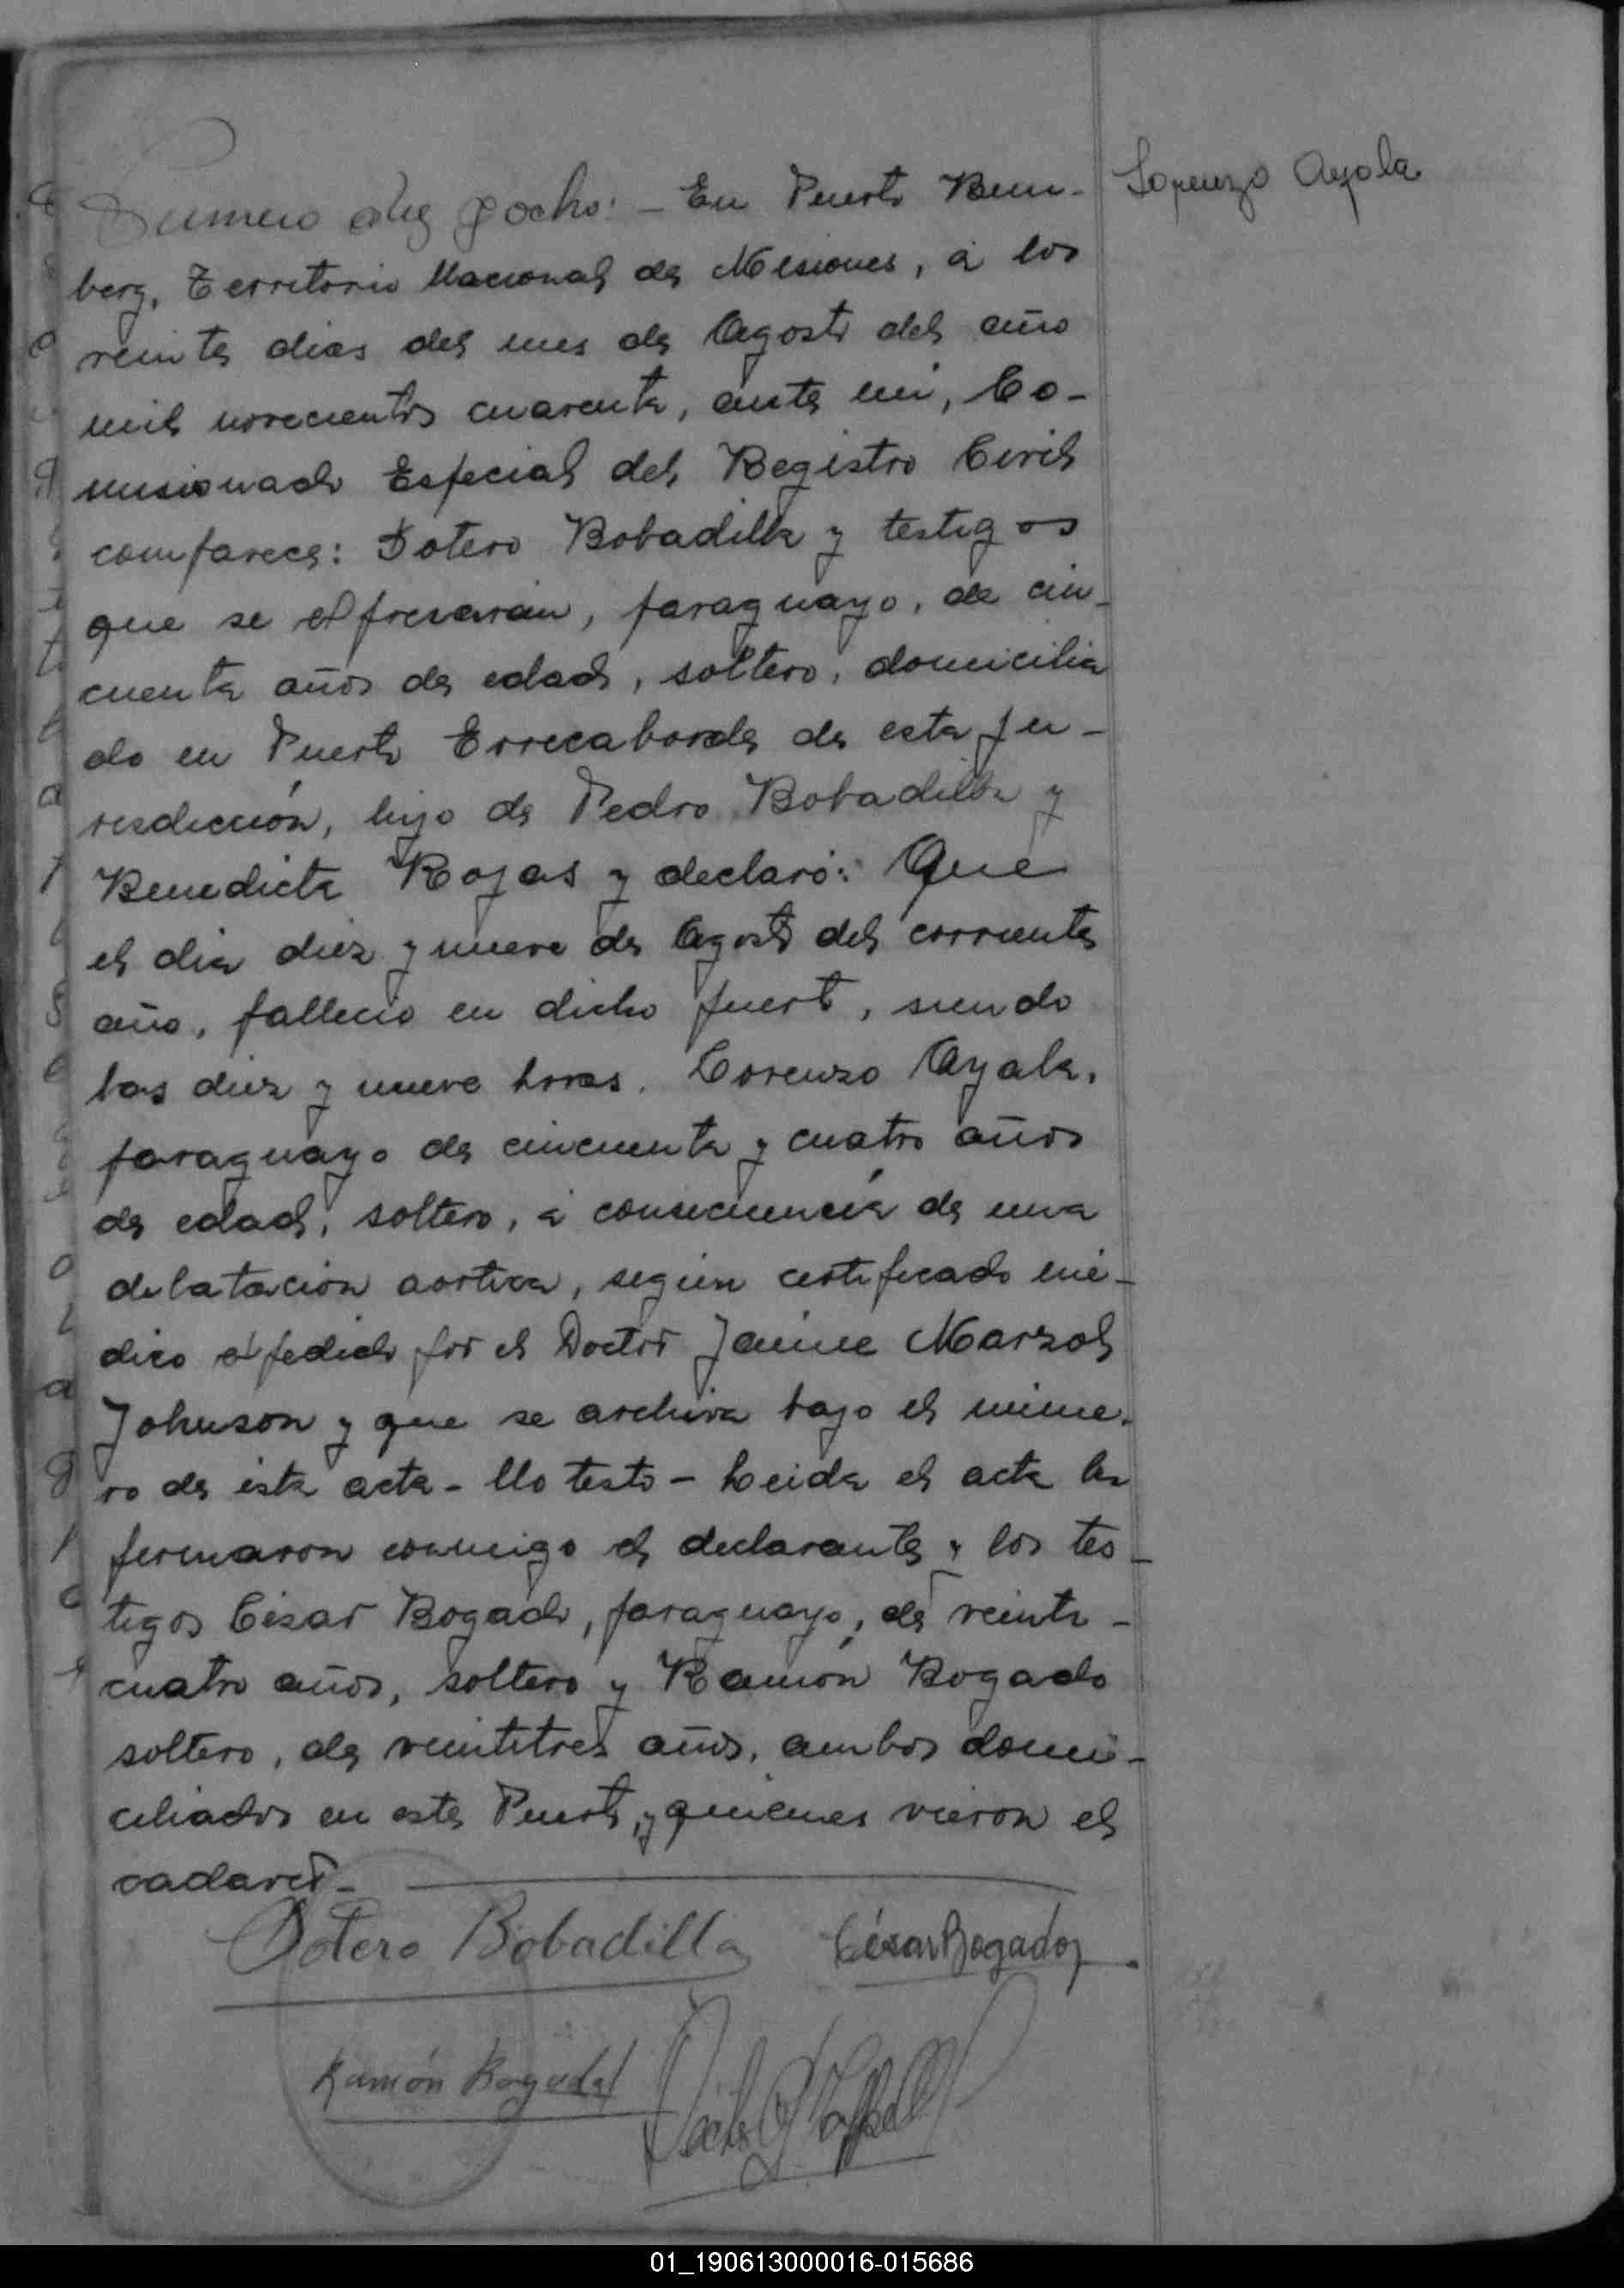 Número diez y ocho: - En Puerto Bem-
berg, Territorio Nacional de Misiones, á los
veinte dias del mes de Agosto del año
mil novecientos cuarenta, ante mi, Co-
misionado Especial del Registro Civil
comparece: Sotero Bobadilla y testigos
que se expresarán, paraguayo, de cin-
cuenta años de edad, soltero, domicilia
do en Puerto Errecaborde de esta ju-
risdicción, hijo de Pedro Bobadilla y
Benedicta Rojas y declaró: Que
el dia diez y nueve de Agosto del corriente
año, fallecio en dicho puerto, siendo
las diez y nueve horas. Lorenzo Ayala,
paraguayo de cincuenta y cuatro años
de edad, soltero, á consecuencia de una
dilatación aortica, según certificado mé-
dico expedido por el Doctor Jaime Marzol
Johnson y que se archiva bajo el núme-
ro de ésta acta - No testó - Leida el acta la
firmaron conmigo el declarante y los tes-
tigos César Bogado, paraguayo, de veinte-
cuatro años, soltero y Ramón Bogado
soltero, de veintitres años, ambos domi-
ciliados en este Puerto, y quienes vieron el
cadaver -
Sotero Bobadilla César Bogado
Ramón Bogado
Lorenzo Ayala
01_190613000016-015686